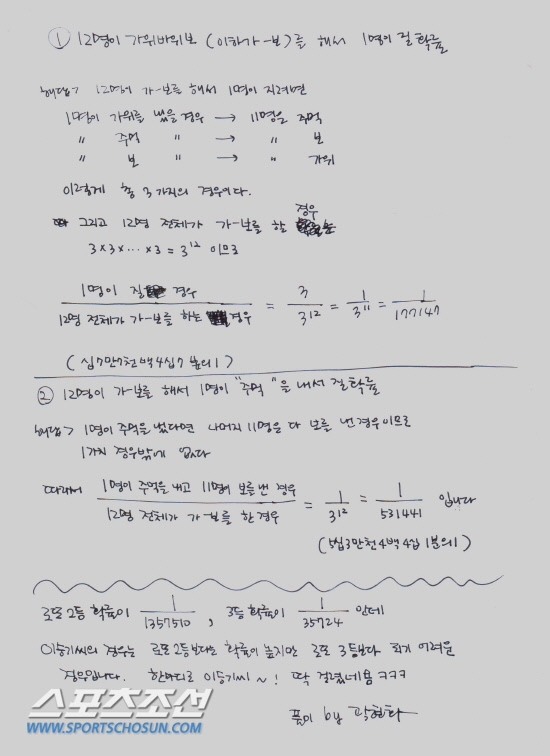 ① 12명이 가위바위보 (이하 가-보)를 해서 1명이 질 확률
해답> 12명이 가-보를 해서 1명이 지려면
1명이 가위를 냈을 경우 → 11명은 주먹
〃 주먹 〃 → 〃 보
〃 보 〃 → 〃 가위
이렇게 총 3가지의 경우이다.
그리고 12명 전체가 가-보를 할 경우
3×3×…×3 = 3¹² 이므로
1명이 질 경우 / 12명 전체가 가-보를 하는 경우 = 3/3¹² = 1/3¹¹ = 1/177147
(십7만7천백4십7분의1)
② 12명이 가-보를 해서 1명이 "주먹"을 내서 질 확률
해답> 1명이 주먹을 냈다면 나머지 11명은 다 보를 낸 경우이므로
1가지 경우밖에 없다
따라서 1명이 주먹을 내고 11명이 보를 낸 경우 / 12명 전체가 가-보를 한 경우 = 1/3¹² = 1/531441 입니다
(5십3만천4백4십1분의1)
로또 2등 확률이 1/1357510, 3등 확률이 1/35724 인데
이승기씨의 경우는 로또 2등보다는 확률이 높지만 로또 3등보다 되기 어려운
경우입니다. 한마디로 이승기씨~! 딱 걸렸네용 ㅋㅋㅋ
풀이 by 곽현화
스포츠조선
WWW.SPORTSCHOSUN.COM